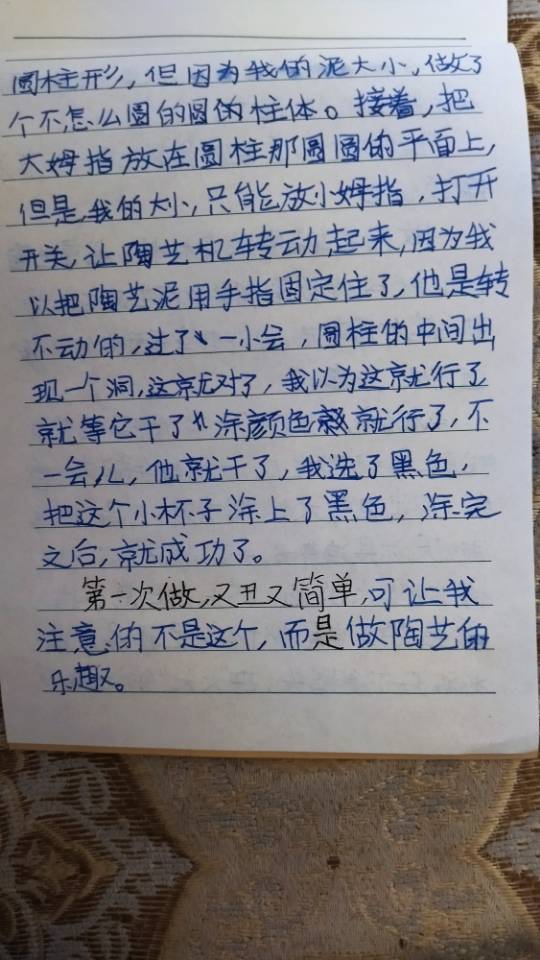 圆柱形，但因为我的泥大小，做了
个不怎么圆的圆的柱体。接着，把
大姆指放在圆柱那圆圆的平面上，
但是我的太小，只能放小姆指，打开
开关，让陶艺机转动起来，因为我
以把陶艺泥用手指固定住了，他是转
不动的，过了一小会，圆柱的中间出
现一个洞，这就对了，我以为这就行了
就等它干了涂颜色就行了，不
一会儿，他就干了，我选了黑色，
把这个小杯子涂上了黑色，涂完
之后，就成功了。
第一次做，又丑又简单，可让我
注意的不是这个，而是做陶艺的
乐趣。